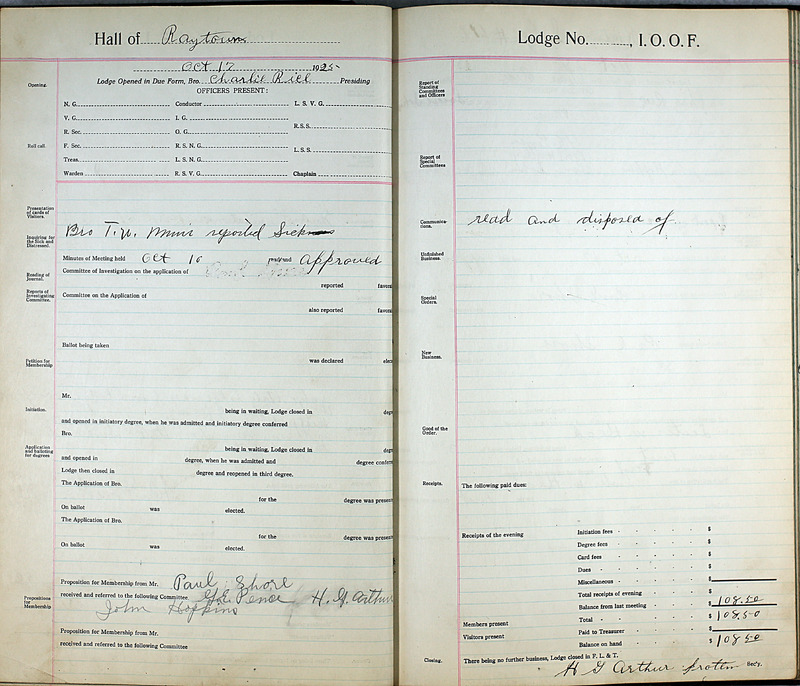 Hall of Raytown
Oct 17 1925
Opening. Lodge Opened in Due Form, Bro. Charlie Rill Presiding
OFFICERS PRESENT:
N. G. Conductor L. S. V. G.
V. G. I. G.
R. S. S.
R. Sec. O. G.
Roll call. F. Sec. R. S. N. G.
L. S. S.
Treas. L. S. N. G.
Warden R. S. V. G. Chaplain
Presentation of cards of Visitors.
Inquiring for the Sick and Distressed. Bro T. W. reported Sick
Minutes of Meeting held Oct 10 read and approved
Reading of Journal. Committee of Investigation on the application of
reported favora
Reports of Investigating Committee. Committee on the Application of
also reported favora
Ballot being taken
Petition for Membership was declared elec
Mr.
Initiation. being in waiting, Lodge closed in degr
and opened in initiatory degree, when he was admitted and initiatory degree conferred
Bro.
Application and balloting for degrees being in waiting, Lodge closed in degr
and opened in degree, when he was admitted and degree confern
Lodge then closed in degree and reopened in third degree.
The Application of Bro.
for the degree was present
On ballot was elected.
The Application of Bro.
for the degree was present
On ballot was elected.
Proposition for Membership from Mr. Paul Shore
Propositions for Membership received and referred to the following Committee G. E. Pence H. G. Arthur
John Hopkins
Proposition for Membership from Mr.
received and referred to the following Committee
Lodge No. , I. O. O. F.
Report of Standing Committees and Officers
Report of Special Committees
Communications. read and disposed of
Unfinished Business.
Special Orders.
New Business.
Good of the Order.
Receipts. The following paid dues:
Receipts of the evening Initiation fees $
Degree fees $
Card fees $
Dues $
Miscellaneous $
Total receipts of evening $
Balance from last meeting $ 108.50
Members present Total $ 108.50
Visitors present Paid to Treasurer $
Balance on hand $ 108 50
Closing. There being no further business, Lodge closed in F. L. & T.
H G Arthur protem Sec'y.